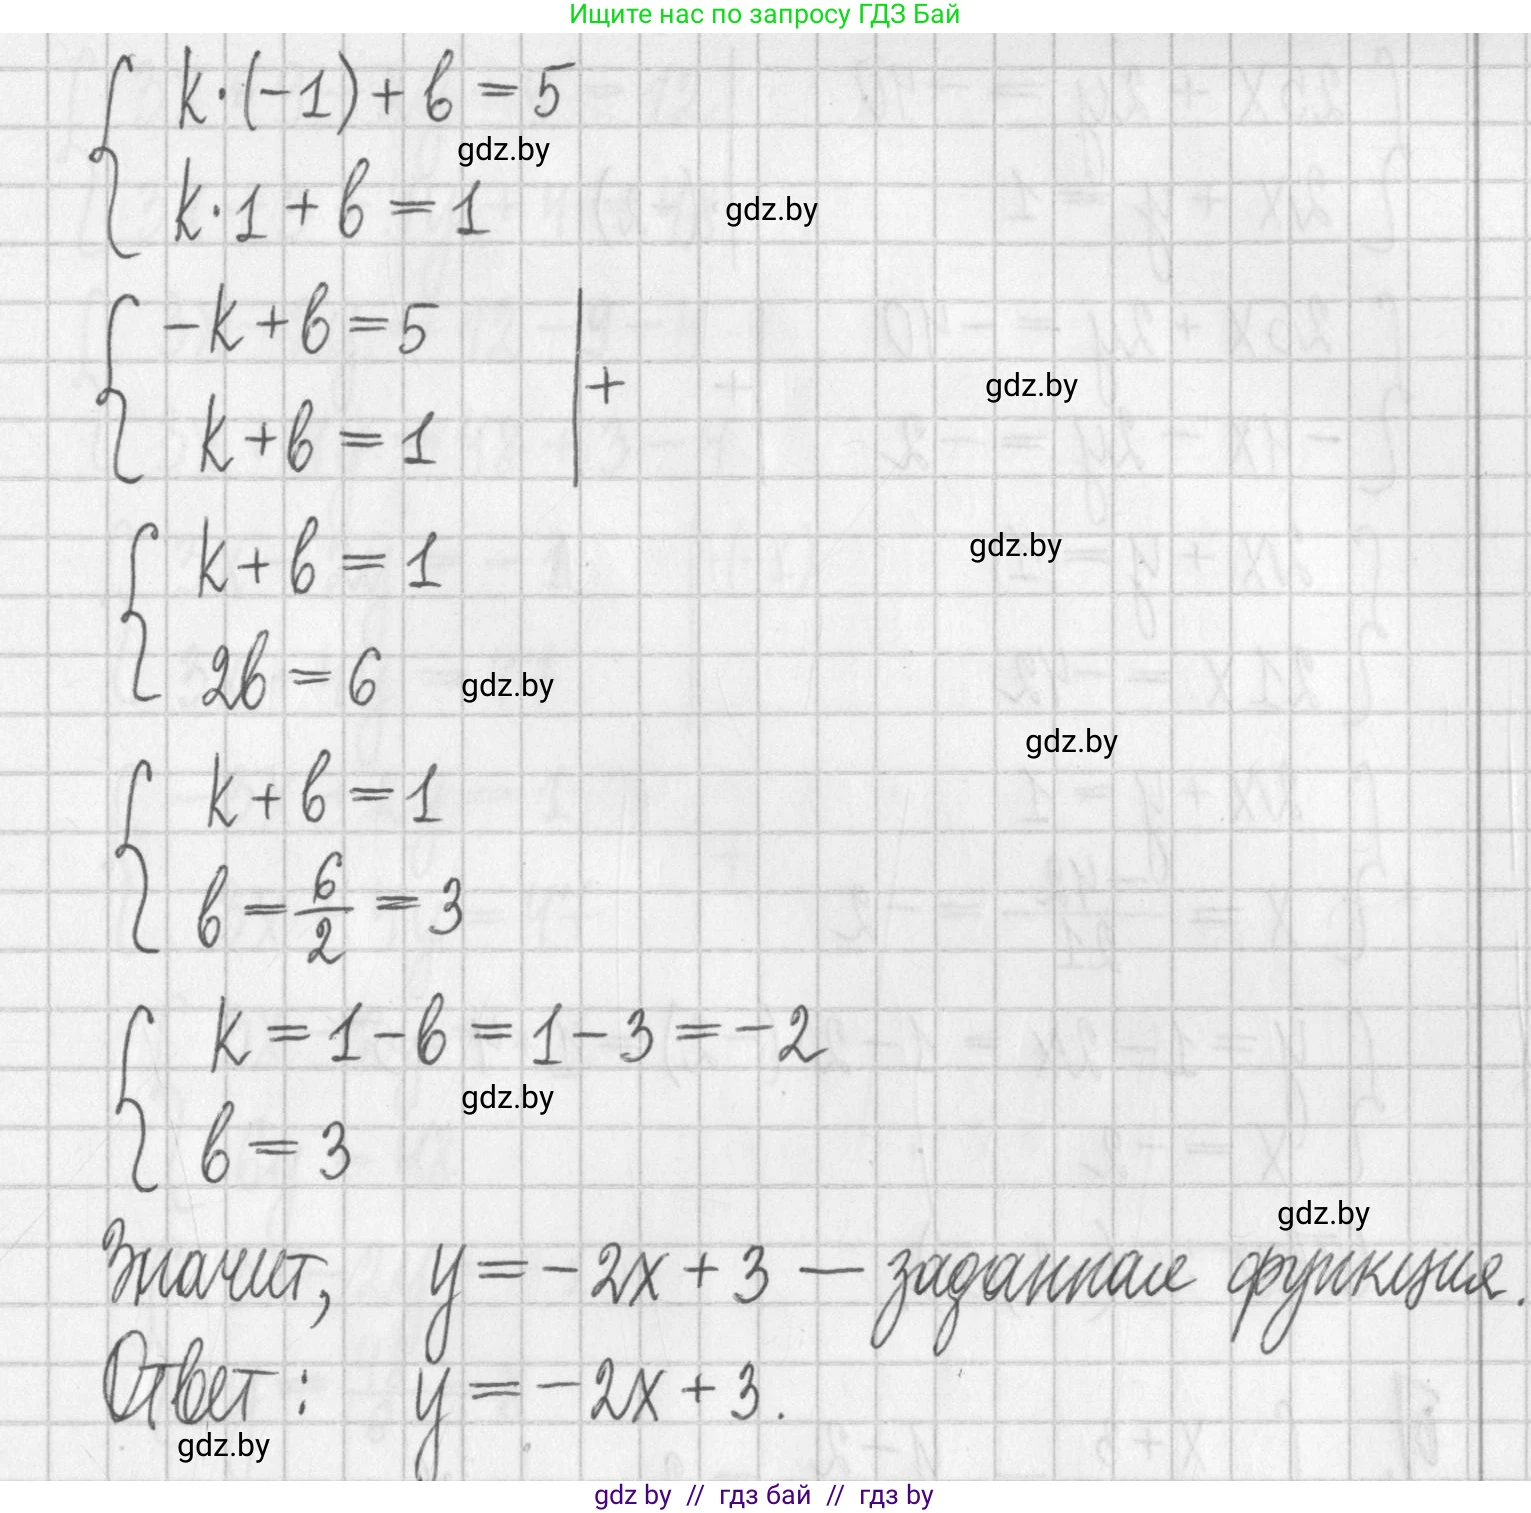 Ищите нас по запросу ГДЗ Бай
k·(-1)+b=5
gdz.by
k·1+b=1
gdz.by
-k+b=5
+
gdz.by
k+b=1
k+b=1
gdz.by
2b=6
gdz.by
gdz.by
k+b=1
b=6/2=3
k=1-b=1-3=-2
gdz.by
b=3
gdz.by
Значит, y=-2x+3 — заданная функция.
Ответ: y=-2x+3.
gdz.by
gdz by // гдз бай // гдз by